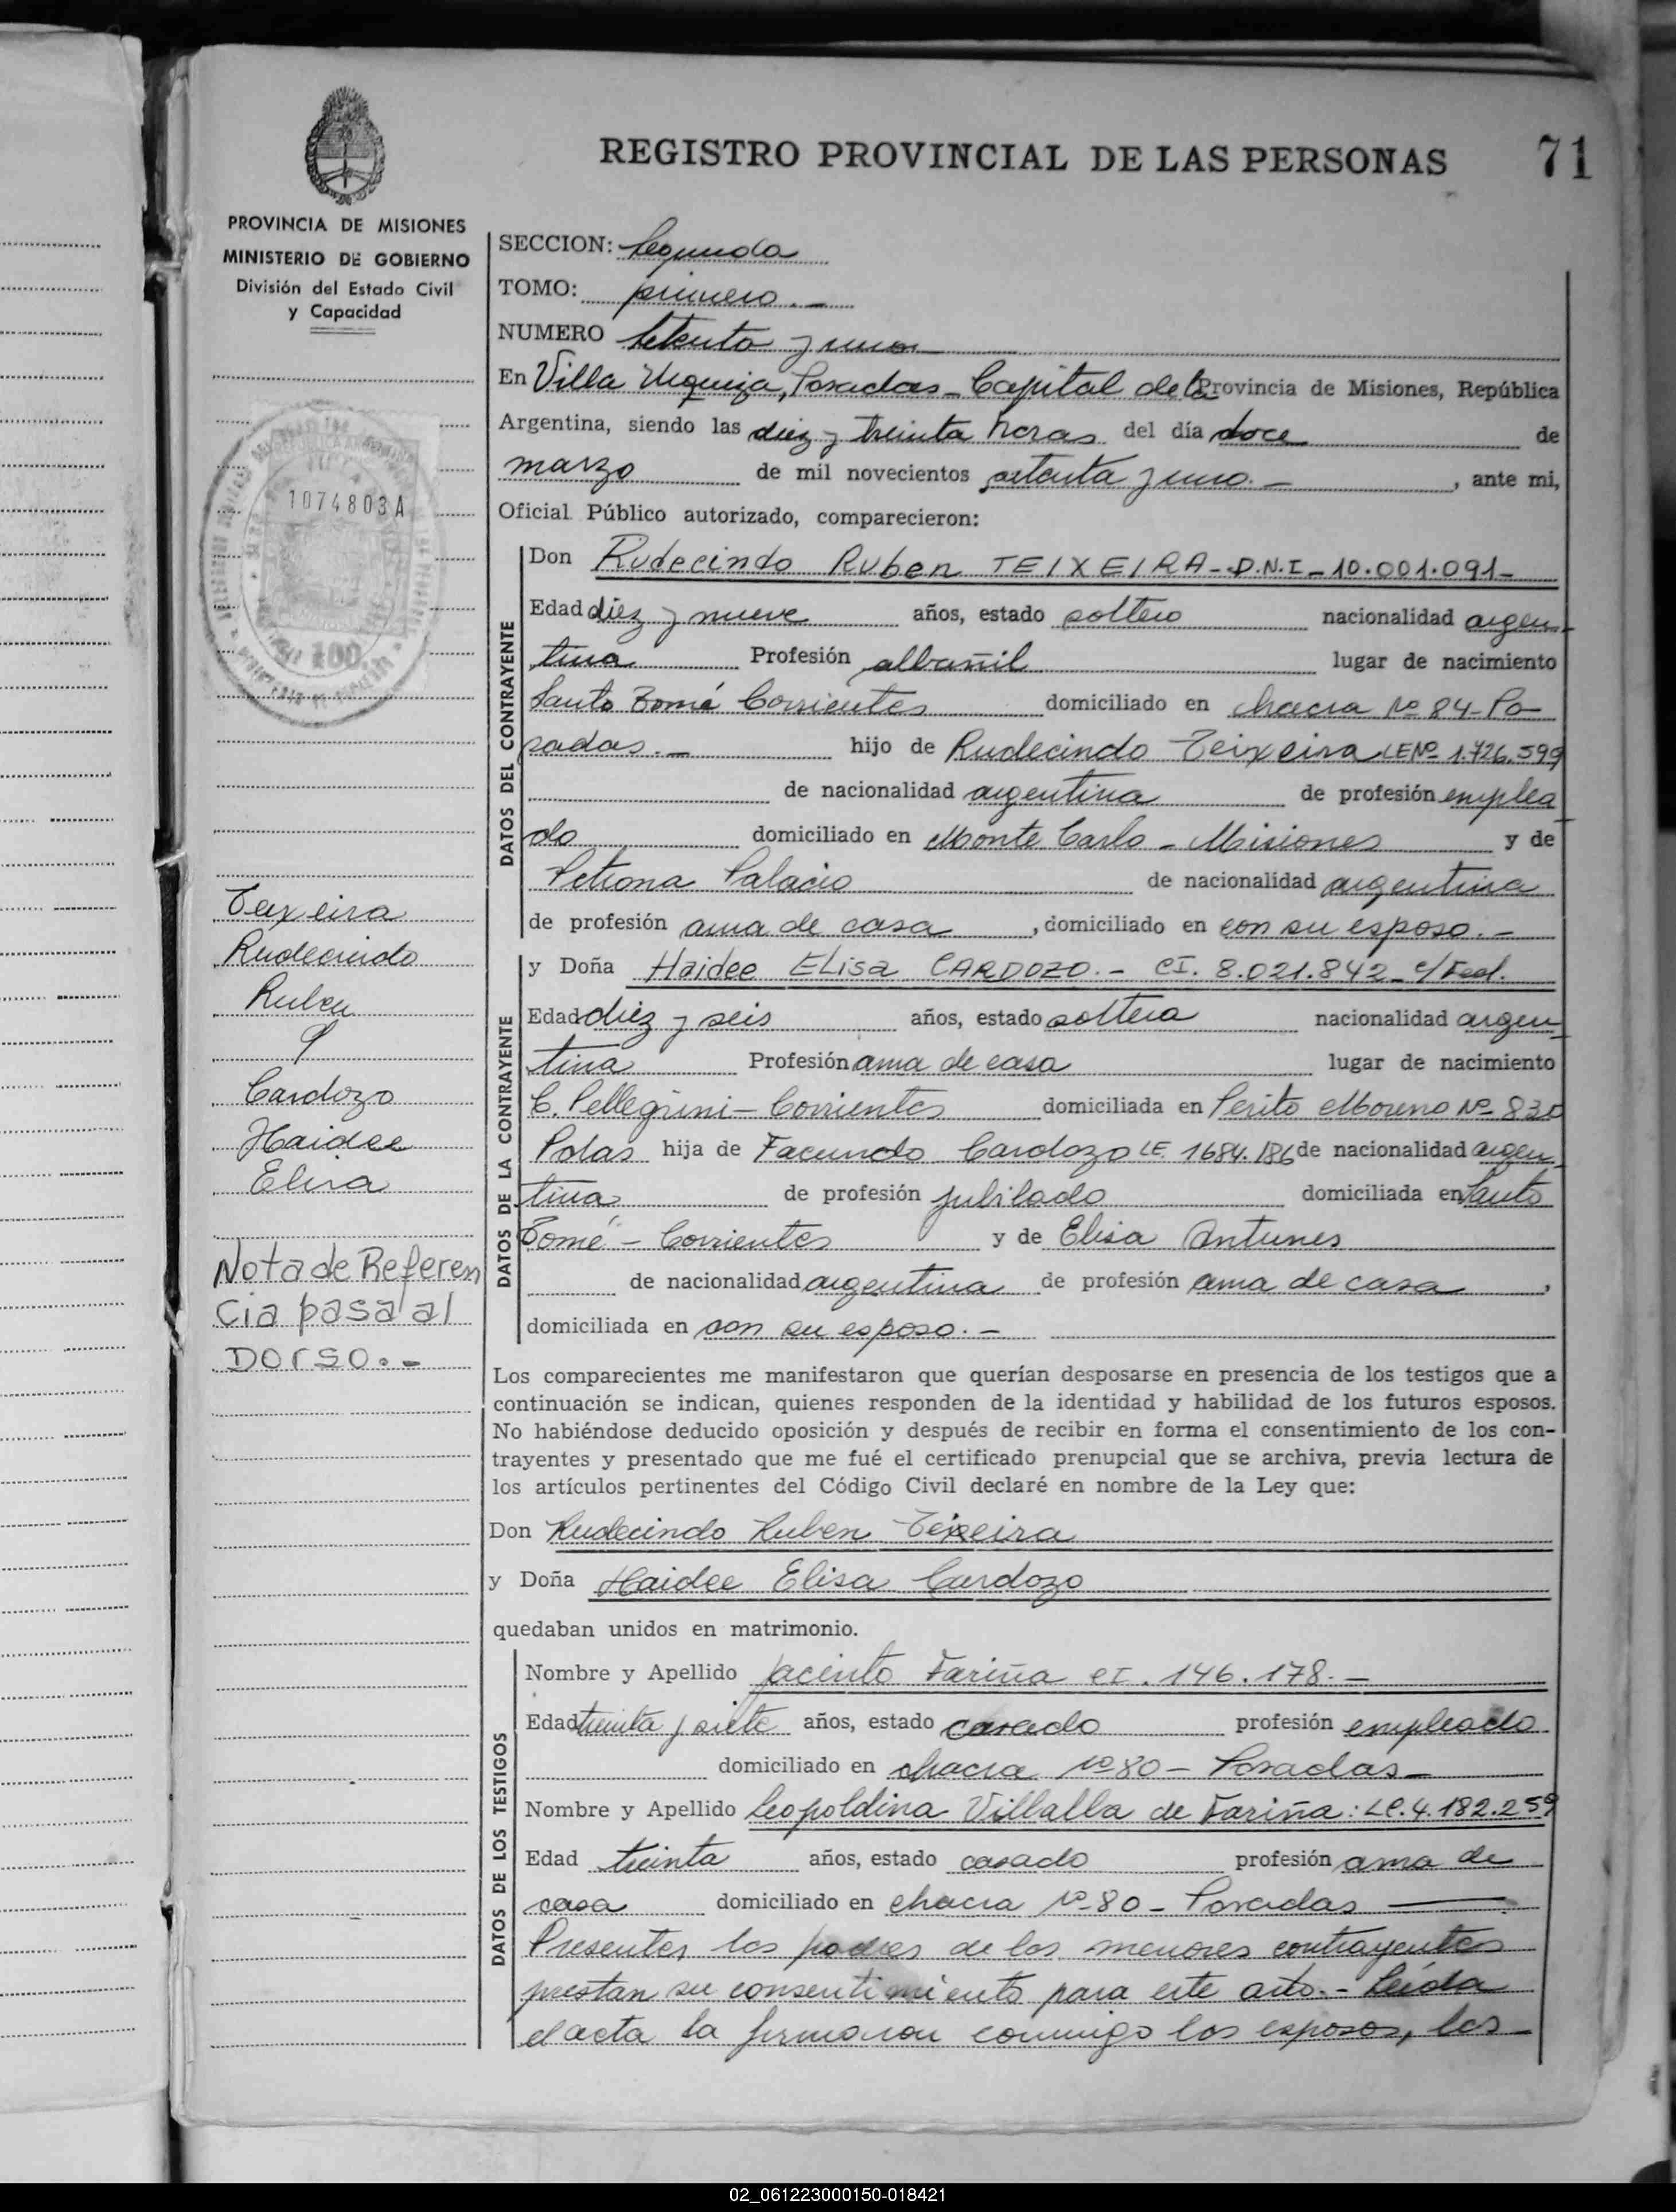 REGISTRO PROVINCIAL DE LAS PERSONAS 71
PROVINCIA DE MISIONES
MINISTERIO DE GOBIERNO
División del Estado Civil
y Capacidad
1074803A
100
Teixeira
Rudecindo
Ruben
y
Cardozo
Haidee
Elisa
Nota de Referen
cia pasa al
Dorso.-
SECCION: Segunda
TOMO: primero.-
NUMERO Setenta y uno
En Villa Urquiza, Posadas - Capital de la Provincia de Misiones, República
Argentina, siendo las diez y treinta horas del día doce de
marzo de mil novecientos setenta y uno.-, ante mi,
Oficial Público autorizado, comparecieron:
DATOS DEL CONTRAYENTE
Don Rudecindo Ruben TEIXEIRA - D.N.I - 10.001.091-
Edad diez y nueve años, estado soltero nacionalidad argen
tina Profesión albañil lugar de nacimiento
Santo Tomé Corrientes domiciliado en chacra Nº 84 - Po
sadas.- hijo de Rudecindo Teixeira LE Nº 1.726.599
de nacionalidad argentina de profesión emplea
do domiciliado en Monte Carlo - Misiones y de
Petrona Palacio de nacionalidad argentina
de profesión ama de casa, domiciliado en con su esposo.-
DATOS DE LA CONTRAYENTE
y Doña Haidee ELisa CARDOZO.- CI. 8.021.842 - c/Fed.
Edad diez y seis años, estado soltera nacionalidad argen
tina Profesión ama de casa lugar de nacimiento
C. Pellegrini - Corrientes domiciliada en Perito Moreno Nº 830
Pdas hija de Facundo Cardozo LE 1684.186 de nacionalidad argen
tina de profesión jubilado domiciliada en Santo
Tomé - Corrientes y de Elisa Antunes
de nacionalidad argentina de profesión ama de casa,
domiciliada en con su esposo.-
Los comparecientes me manifestaron que querían desposarse en presencia de los testigos que a
continuación se indican, quienes responden de la identidad y habilidad de los futuros esposos.
No habiéndose deducido oposición y después de recibir en forma el consentimiento de los con-
trayentes y presentado que me fué el certificado prenupcial que se archiva, previa lectura de
los artículos pertinentes del Código Civil declaré en nombre de la Ley que:
Don Rudecindo Ruben Teixeira
y Doña Haidee Elisa Cardozo
quedaban unidos en matrimonio.
DATOS DE LOS TESTIGOS
Nombre y Apellido Jacinto Fariña CI. 146.178.-
Edad treinta y siete años, estado casado profesión empleado
domiciliado en chacra Nº 80 - Posadas -
Nombre y Apellido Leopoldina Villalba de Fariña: LC. 4.182.259
Edad treinta años, estado casado profesión ama de
casa domiciliado en chacra Nº 80 - Posadas
Presentes los padres de los menores contrayentes
prestan su consentimiento para este acto.- Leída
el acta la firmaron conmigo los esposos, los
02_061223000150-018421